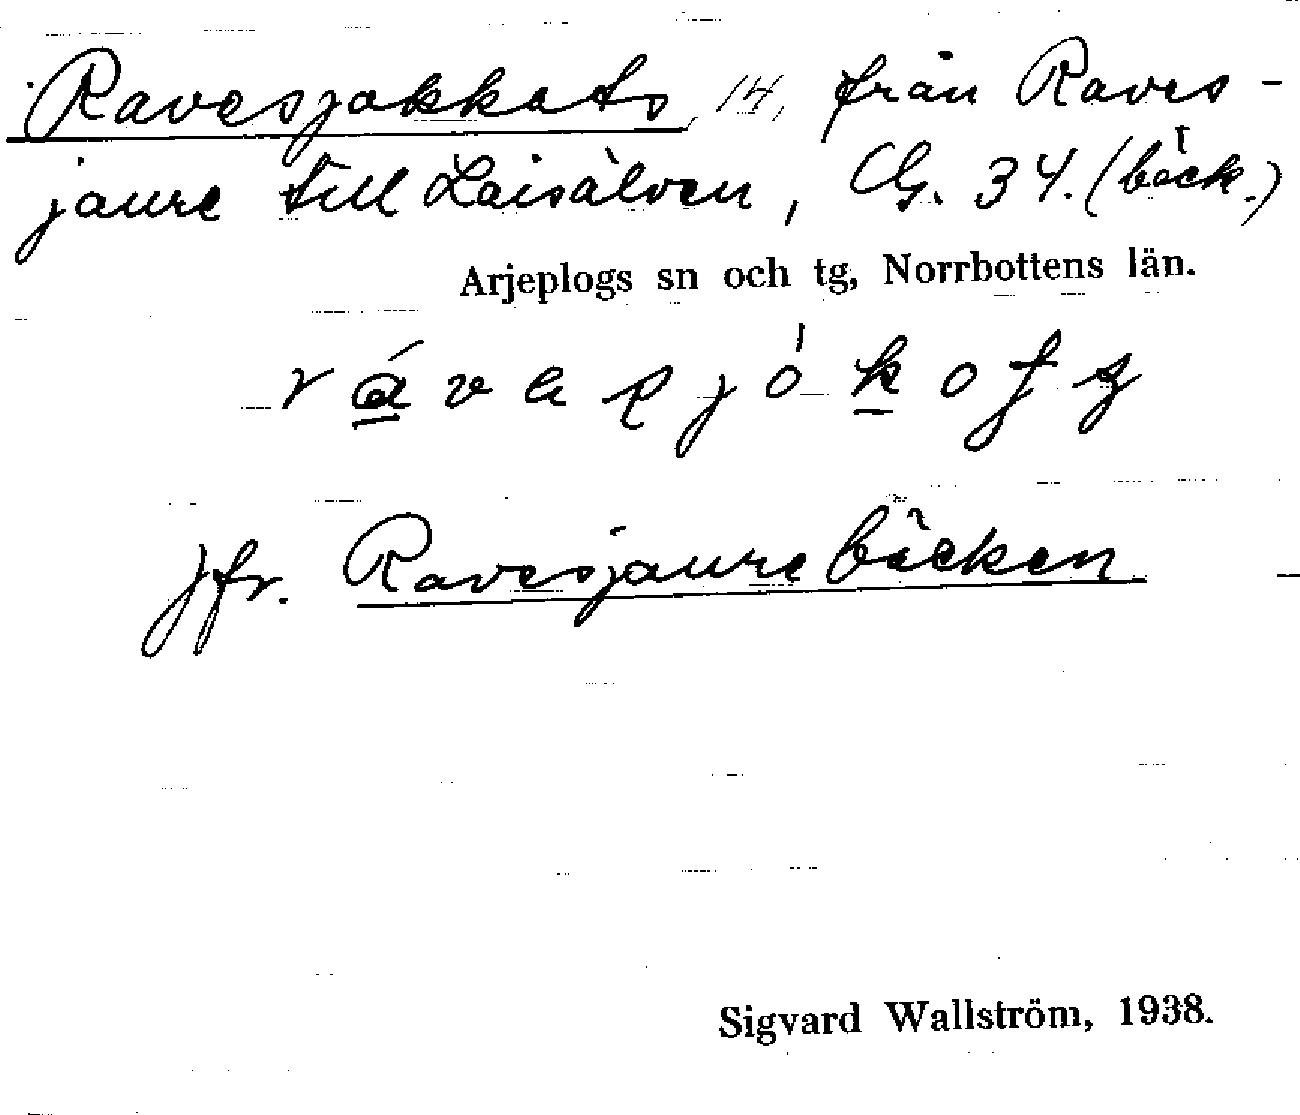 Ravesjokkats, 14, från Raves-
jaure till Laisälven, Cg. 34. (bäck.)
Arjeplogs sn och tg, Norrbottens län.
jfr. Ravesjaurebäcken
Sigvard Wallström, 1938.